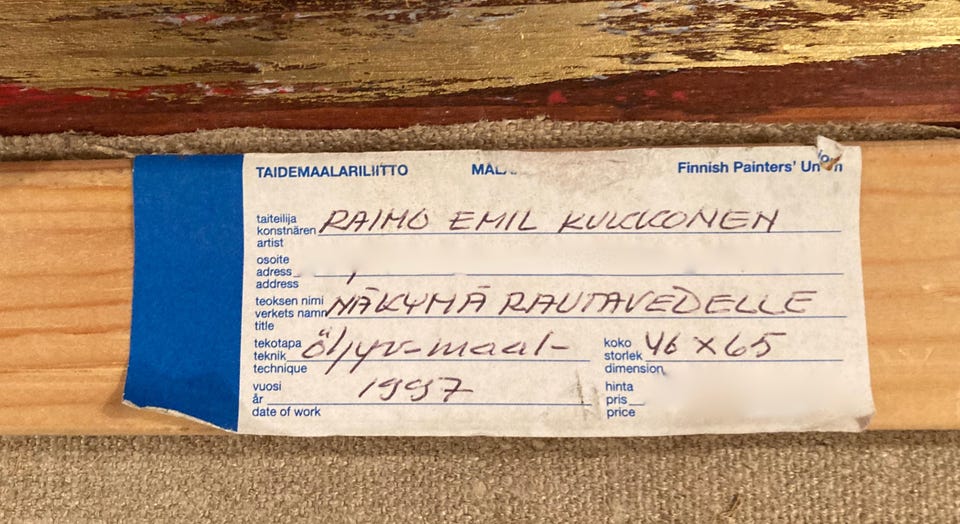 TAIDEMAALARILIITTO Finnish Painters' Union
taiteilija
konstnären RAIMO EMIL KUKKONEN
artist
osoite
adress
address
teoksen nimi
verkets namn NÄKYMÄ RAUTAVEDELLE
title
tekotapa koko
teknik öljyv-maal- storlek 46 x 65
technique dimension
vuosi hinta
år 1997 pris
date of work price